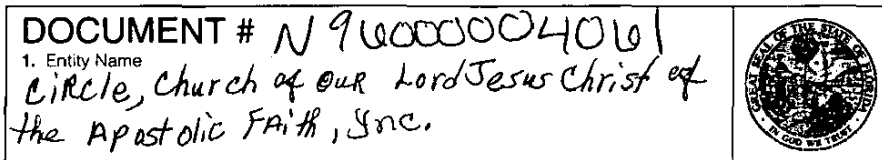 DOCUMENT # N96000004061
1. Entity Name
CiRCle, Church of OUR Lord Jesus Christ of
the Apostolic FAith, Inc.
GREAT SEAL OF THE STATE OF FLORIDA
IN GOD WE TRUST